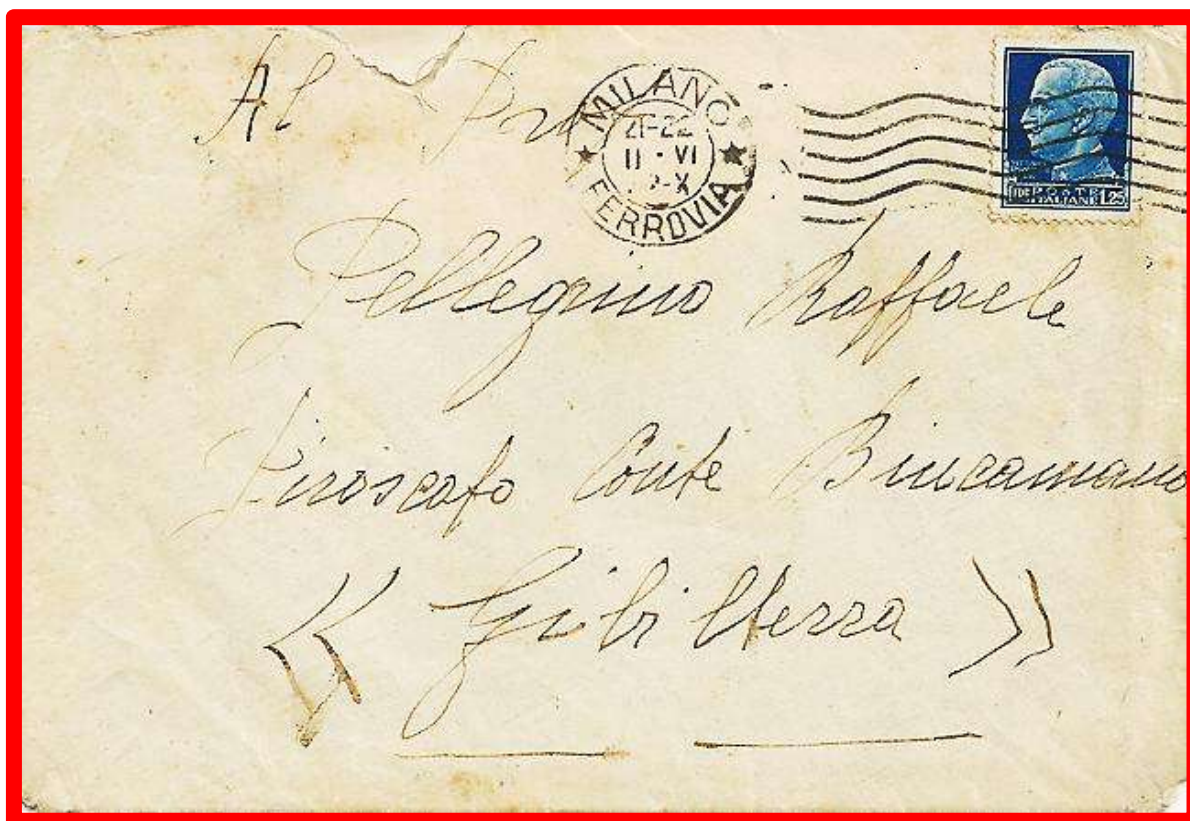 Al
MILANO
21-22
11·VI
FERROVIA
POSTE
ITALIANE
1,25
Pellegrino Raffaele
Piroscafo Conte Biancamano
« Gibilterra »